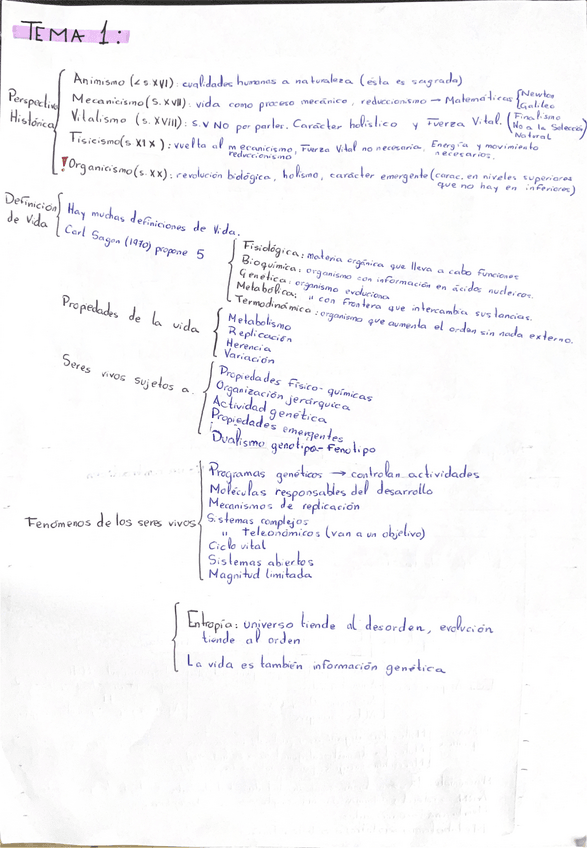 TEMA 1:
Perspectiva Histórica
Animismo (< s. XVI): cualidades humanas a naturaleza (ésta es sagrada)
Mecanicismo (s. XVII): vida como proceso mecánico, reduccionismo → Matemáticas { Newton
Galileo
Vitalismo (s. XVIII): s.v No por partes. Carácter holístico y Fuerza Vital. { Finalismo
No a la Selección
Natural
Fisicismo (s. XIX): vuelta al mecanicismo, Fuerza Vital no necesaria, Energía y movimiento
reduccionismo
necesarios.
! Organicismo (s. XX): revolución biológica, holismo, carácter emergente (carac. en niveles superiores
que no hay en inferiores)
Definición de Vida
Hay muchas definiciones de Vida.
Carl Sagan (1970) propone 5
Fisiológica: materia orgánica que lleva a cabo funciones
Bioquímica: organismo con información en ácidos nucleicos.
Genética: organismo evoluciona
Metabólica: " con frontera que intercambia sustancias.
Termodinámica: organismo que aumenta el orden sin nada externo.
Propiedades de la vida
Metabolismo
Replicación
Herencia
Variación
Seres vivos sujetos a
Propiedades físico-químicas
Organización jerárquica
Actividad genética
Propiedades emergentes
Dualismo genotipo-Fenotipo
Fenómenos de los seres vivos
Programas genéticos → controlan actividades
Moléculas responsables del desarrollo
Mecanismos de replicación
Sistemas complejos
" Teleonómicos (van a un objetivo)
Ciclo vital
Sistemas abiertos
Magnitud limitada
Entropía: universo tiende al desorden, evolución
tiende al orden
La vida es también información genética